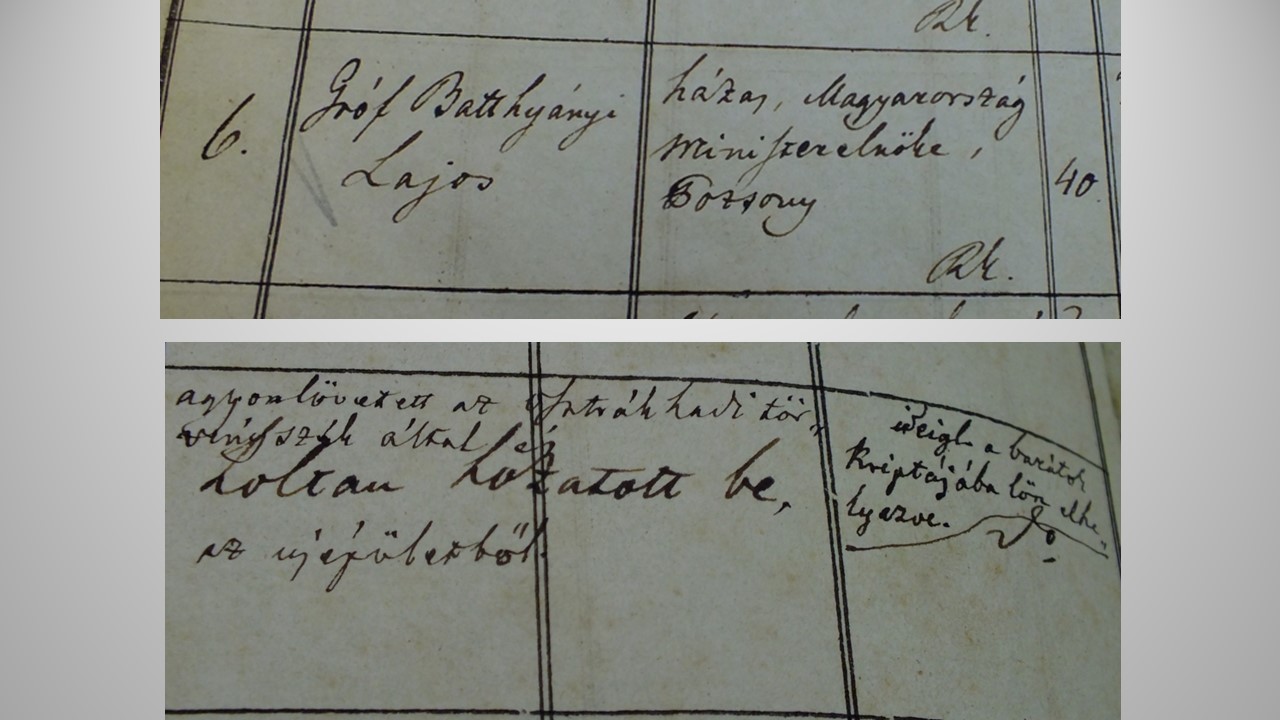 Rk.
6.
Gróf Batthyányi
Lajos
házas, Magyarország
Miniszterelnöke,
Pozsony
40.
Rk.
agyonlövetett az Osztrák hadi tör-
vényszék által és
holtan hózatott be,
az ujépületből.
ideigl. a barátok
Kriptájába lön elhe-
lyezve.